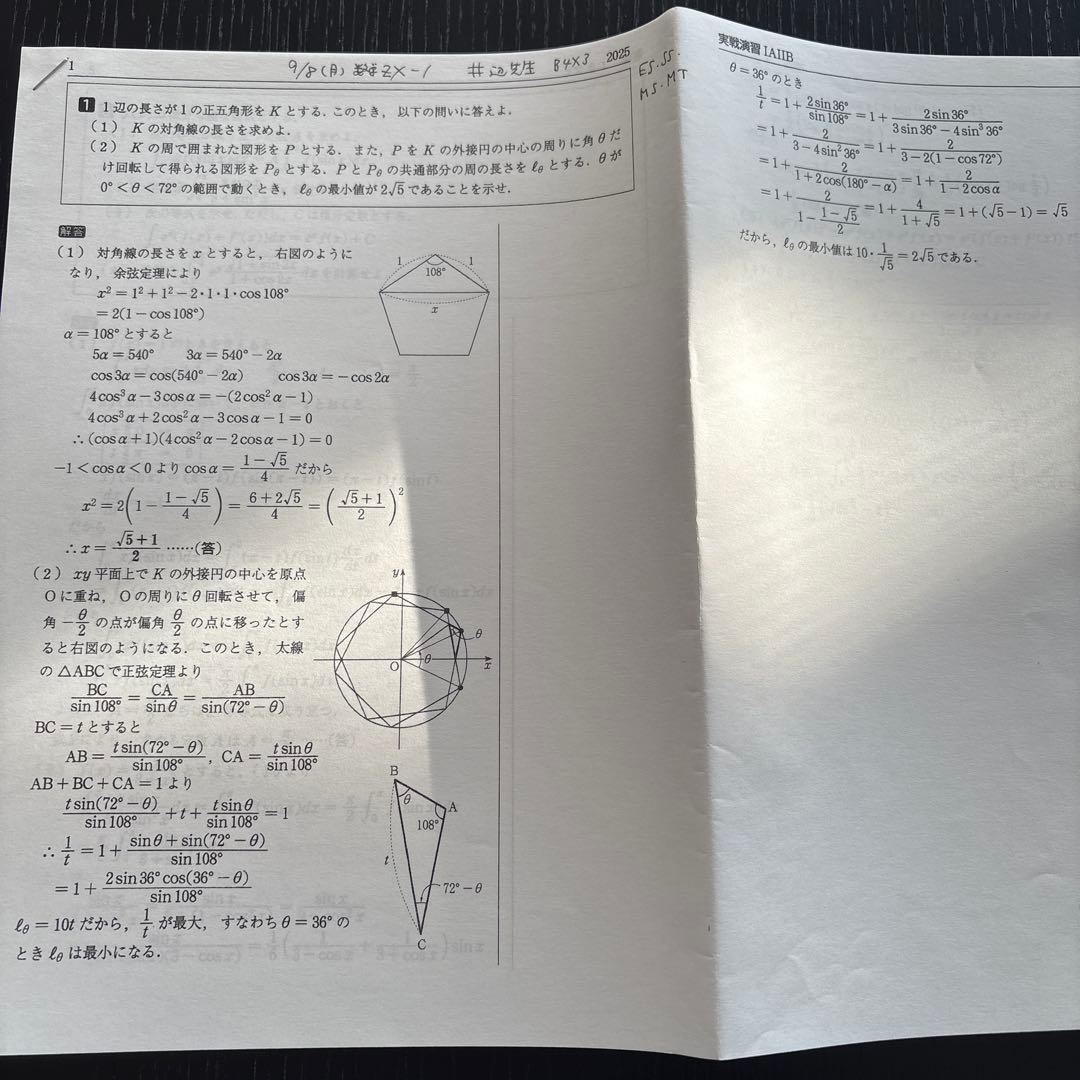 1
9/8(月) 数学ZX-1 井辺先生 B4×3 2025
ES.SS.
MS.MT
1 1辺の長さが1の正五角形をKとする.このとき,以下の問いに答えよ.
(1) Kの対角線の長さを求めよ.
(2) Kの周で囲まれた図形をPとする.また,PをKの外接円の中心の周りに角θだ
け回転して得られる図形をPθとする.PとPθの共通部分の周の長さをℓθとする.θが
0°<θ<72°の範囲で動くとき,ℓθの最小値が2√5であることを示せ.
解答
(1) 対角線の長さをxとすると,右図のように
なり,余弦定理により
x²=1²+1²-2・1・1・cos108°
=2(1-cos108°)
α=108°とすると
5α=540° 3α=540°-2α
cos3α=cos(540°-2α) cos3α=-cos2α
4cos³α-3cosα=-(2cos²α-1)
4cos³α+2cos²α-3cosα-1=0
∴(cosα+1)(4cos²α-2cosα-1)=0
-1<cosα<0よりcosα=(1-√5)/4だから
x²=2(1-(1-√5)/4)=(6+2√5)/4=((√5+1)/2)²
∴x=(√5+1)/2 ……(答)
1 1
108°
x
(2) xy平面上でKの外接円の中心を原点
Oに重ね,Oの周りにθ回転させて,偏
角-θ/2の点が偏角θ/2の点に移ったとす
ると右図のようになる.このとき,太線
の△ABCで正弦定理より
BC/sin108°=CA/sinθ=AB/sin(72°-θ)
BC=tとすると
AB=tsin(72°-θ)/sin108°, CA=tsinθ/sin108°
AB+BC+CA=1より
tsin(72°-θ)/sin108°+t+tsinθ/sin108°=1
∴1/t=1+(sinθ+sin(72°-θ))/sin108°
=1+2sin36°cos(36°-θ)/sin108°
ℓθ=10tだから,1/tが最大,すなわちθ=36°の
ときℓθは最小になる.
y
θ
O
θ
x
B
θ
A
108°
t
72°-θ
C
実戦演習ⅠAⅡB
θ=36°のとき
1/t=1+2sin36°/sin108°=1+2sin36°/(3sin36°-4sin³36°)
=1+2/(3-4sin²36°)=1+2/(3-2(1-cos72°))
=1+2/(1+2cos(180°-α))=1+2/(1-2cosα)
=1+2/(1-(1-√5)/2)=1+4/(1+√5)=1+(√5-1)=√5
だから,ℓθの最小値は10・1/√5=2√5である.